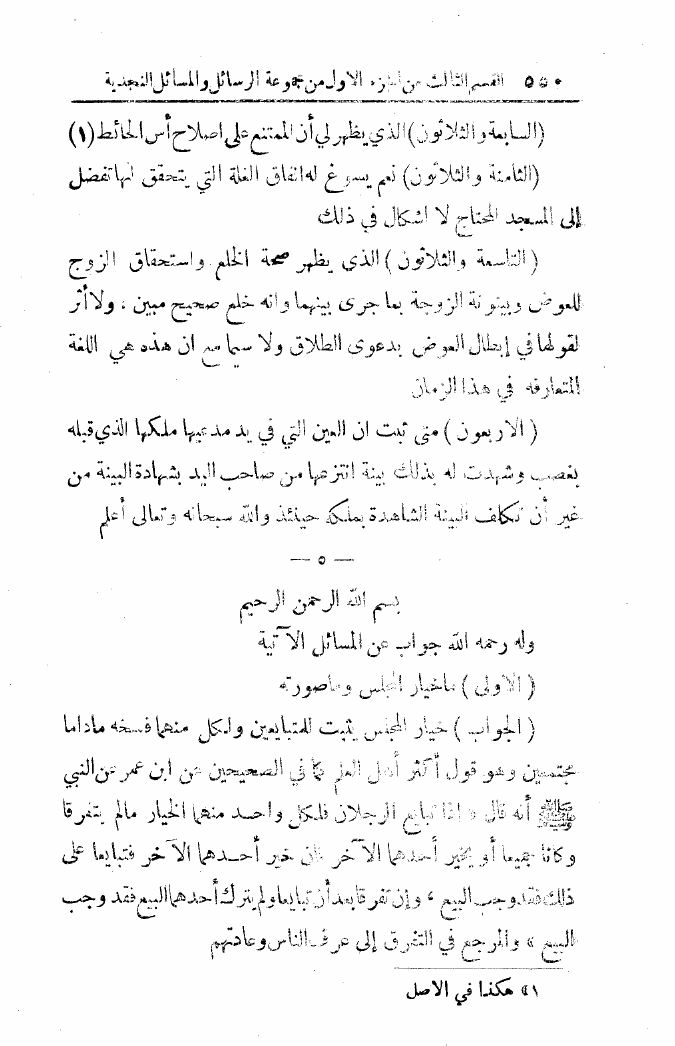 القسم الثالث من الجزء الاول من مجموعة الرسائل والمسائل النجدية
(السابعة والثلاثون) الذي يظهر لي أن الممتنع على اصلاح أس الحائط (١)
(الثامنة والثلاثون) نعم يسوغ له انفاق الغلة التي يتحقق انها تفضل
إلى المسجد المحتاج لا اشكال في ذلك
(التاسعة والثلاثون) الذي يظهر صحة الخلع واستحقاق الزوج
للعوض وبينونة الزوجة بما جرى بينهما وانه خلع صحيح مبين ، ولا أثر
لقولها في إبطال العوض بدعوى الطلاق ولا سيما مع ان هذه هي اللغة
المتعارفه في هذا الزمان
(الاربعون) متى ثبت ان العين التي في يد مدعيها ملكها الذي قبله
بغصب وشهدت له بذلك بينة انتزعها من صاحب اليد بشهادة البينة من
غير أن تكلف البينة الشاهدة بملكه حينئذ والله سبحانه وتعالى أعلم
— ٥ —
بسم الله الرحمن الرحيم
وله رحمه الله جواب عن المسائل الآتية
(الاولى) ماخيار المجلس وماصورته
(الجواب) خيار المجلس يثبت للمتبايعين ولكل منهما فسخه ماداما
مجتمعين وهو قول أكثر أهل العلم لما في الصحيحين عن ابن عمر عن النبي
ﷺ أنه قال « اذا تبايع الرجلان فلكل واحد منهما الخيار مالم يتفرقا
وكانا جميعا أو يخير أحدهما الآخر فان خير أحدهما الآخر فتبايعا على
ذلك فقد وجب البيع ، وإن تفرقا بعد أن تبايعا ولم يترك أحدهما البيع فقد وجب
البيع » والمرجع في التفرق إلى عرف الناس وعادتهم
«١» هكذا في الاصل